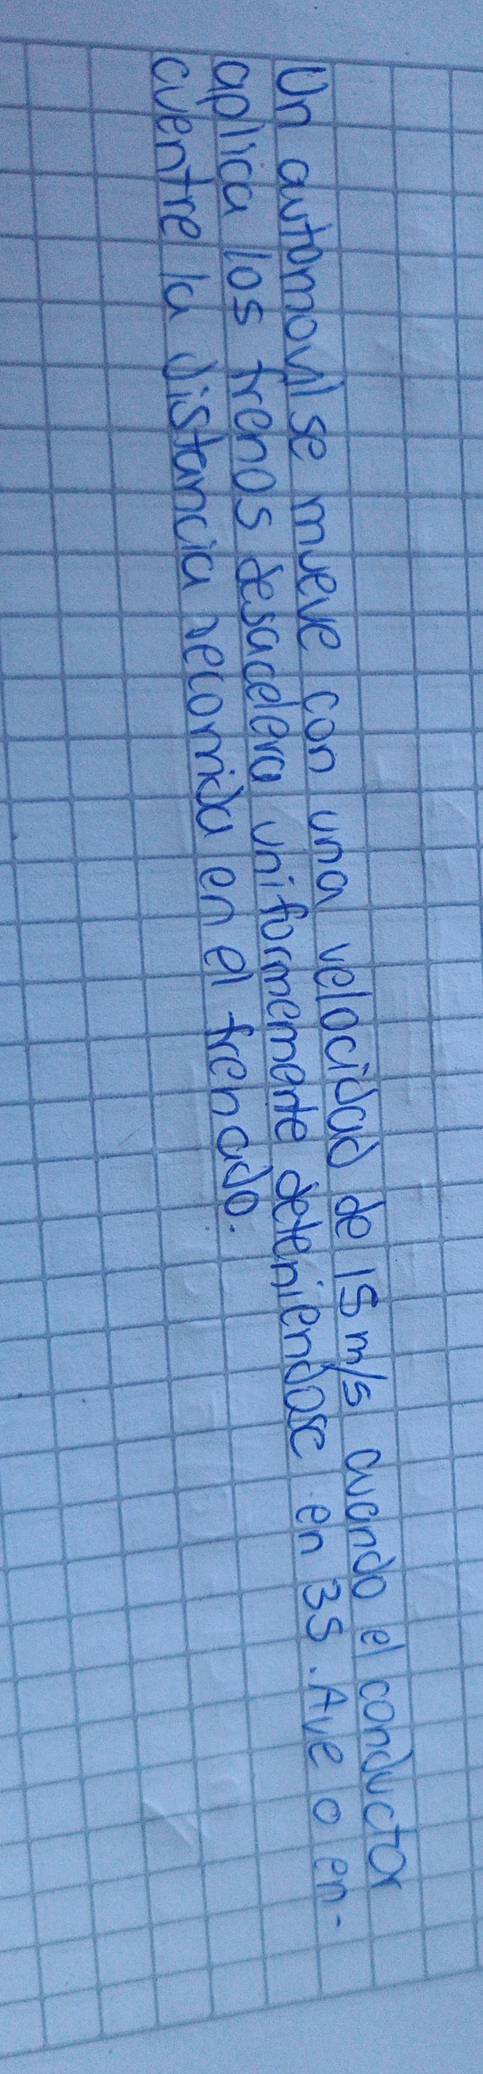 Un automovil se mueve con una velocidad de 15 m/s cuando el conductor
aplica los frenos desacelera uniformemente deteniendose en 3s. Ave o en-
cuentre la distancia recorrida en el frenado.